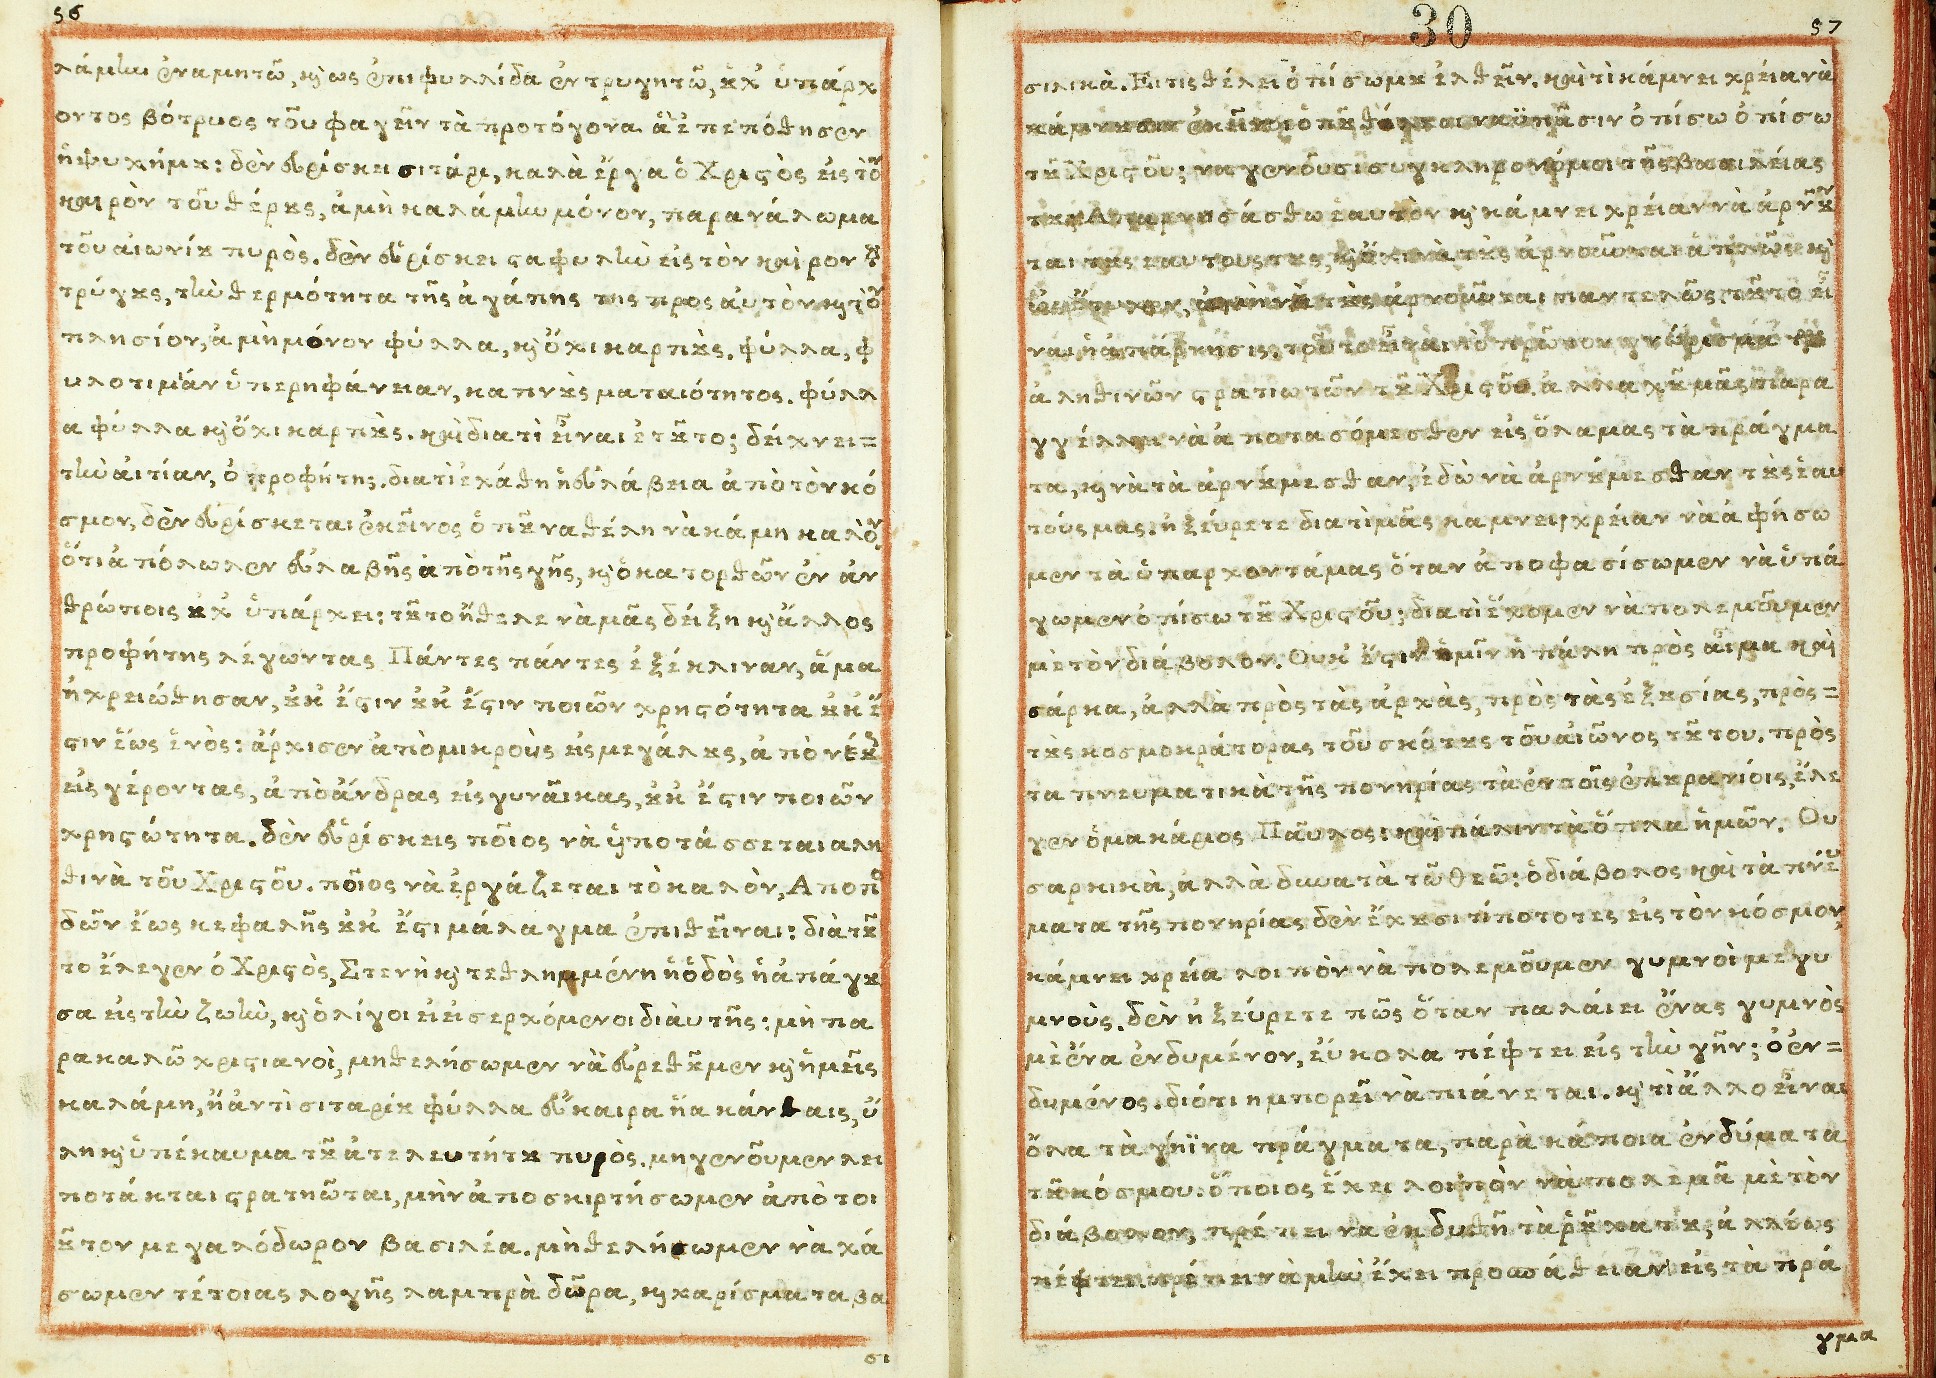 56
λάμην ἐν ἀμητῶ, κὶ ὡς ἐπιφυλλίδα ἐν τρυγητῶ, οὐχ ὑπάρχ
οντος βότρυος τοῦ φαγεῖν τὰ πρωτόγονα ἃ ἐπεπόθησεν
ἡ ψυχή μου: δὲν εὑρίσκει σιτάρι, καλὰ ἔργα ὁ Χριστὸς εἰς τὸν
καιρὸν τοῦ θέρους, ἀμὴ καλάμην μόνον, παρανάλωμα
τοῦ αἰωνίου πυρὸς. δὲν εὑρίσκει σταφυλὴν εἰς τὸν καιρον τοῦ
τρύγους, τὴν θερμότητα τῆς ἀγάπης της προς αὐτὸν κὶ τὸν
πλησίον, ἀμὴ μόνον φύλλα, κὶ ὄχι καρποὺς. φύλλα, φ
υλοτιμίαν ὑπερηφάνειαν, καπνοὺς ματαιότητος. φύλλ
α φύλλα κὶ ὄχι καρποὺς. καὶ διατὶ εἶναι ἐτοῦτο; δείχνει=
τὴν αἰτίαν, ὁ προφήτης. διατὶ ἐχάθη ἡ εὐλάβεια ἀπὸ τὸν κό
σμον, δὲν εὑρίσκεται ἐκεῖνος ὁποῦ να θέλη νὰ κάμη καλὸν,
ὅτι ἀπόλωλεν εὐλαβῆς ἀπὸ τῆς γῆς, κὶ ὁ κατορθῶν ἐν ἀν
θρώποις οὐχ ὑπάρχει: τοῦτο ἤθελε νὰ μᾶς δείξη κὶ ἄλλος
προφήτης λέγωντας Πάντες πάντες ἐξέκλιναν, ἅμα
ἠχρειώθησαν, οὐκ ἔστιν οὐκ ἔστιν ποιῶν χρηστότητα οὐκ ἔ
στιν ἕως ἑνὸς: ἄρχισεν ἀπὸ μικροὺς εἰς μεγάλους, ἀπὸ νέους
εἰς γέροντας, ἀπὸ ἄνδρας εἰς γυναῖκας, οὐκ ἔστιν ποιῶν
χρηστώτητα. δὲν εὑρίσκεις ποῖος νὰ ὑποτάσσεται αλη
θινὰ τοῦ Χριστοῦ. ποῖος νὰ ἐργάζεται τὸ καλὸν, Απο πο
δῶν ἕως κεφαλῆς οὐκ ἔστι μάλαγμα ἐπιθεῖναι: διὰ τοῦ
το ἔλεγεν ὁ Χριστὸς, Στενὴ κὶ τεθλημμένη ἡ ὁδὸς ἡ ἀπάγου
σα εἰς τὴν ζωὴν, κὶ ὀλίγοι εἰ εἰσερχόμενοι διὰ αὐτῆς: μὴ πα
ρακαλῶ χριστιανοὶ, μη θελήσωμεν νὰ εὑρεθοῦμεν κὶ ἡμεῖς
καλάμη, ἢ ἀντὶ σιταρίου φύλλα εὔκαιρα ἢ ακάνθαις, ὕ
λη κὶ ὑπέκαυμα τοῦ ἀτελευτήτου πυρὸς. μη γενοῦμεν λει
ποτάκται στρατηῶται, μὴν ἀποσκιρτήσωμεν ἀπὸ τοι
οῦτον μεγαλόδωρον βασιλέα. μὴ θελήσωμεν νὰ χά
σωμεν τέτοιας λογῆς λαμπρὰ δῶρα, κὶ χαρίσματα βα
σι
30
57
σιλικὰ. Ει τις θέλει ὀπίσω μου ἐλθεῖν. καὶ τὶ κάμνει χρέια νὰ
κάμνουσιν ἐκεῖνοι ὁποῦ θέλουσι να ὑπᾶσιν ὀπίσω ὀπίσω
τοῦ Χριστοῦ; να γενοῦσι συγκληρονόμοι τῆς βασιλείας
του; Απαρνησάσθω ἑαυτὸν κὶ κάμνει χρείαν νὰ ἀρνοῦν
ται τους εαυτους τους, κὶ ὄχι νὰ τοὺς ἀρνοῦνται ἁπλῶς κὶ
ὡς ἔτυχεν, ἀμὴ νὰ τοὺς ἀρνοῦνται παντελῶς τοῦτο εἶ
ναι ἡ ἀπάρνησις, τοῦτο εἶναι τὸ πρῶτον γνώρισμα τῶν
ἀληθινῶν στρατιωτῶν τοῦ Χριστοῦ. ἀλλαχοῦ μᾶς παρα
γγέλλει νὰ ἀποτασόμεσθεν εἰς ὅλα μας τὰ πράγμα
τα, κὶ νὰ τὰ ἀρνούμεσθαν, ἐδὼ νὰ ἀρνούμεσθαν τοὺς ἑαυ
τούς μας. ἠξεύρετε διατὶ μᾶς καμνει χρείαν νὰ ἀφήσω
μεν τὰ ὑπαρχοντά μας ὅταν ἀποφασίσωμεν νὰ ὑπά
γωμεν ὀπίσω τοῦ Χριστοῦ; διατὶ ἔχομεν νὰ πολεμοῦμεν
μὲ τὸν διάβολον. Ουκ ἔστιν ἡμῖν ἡ πάλη πρὸς αἷμα καὶ
σάρκα, ἀλλὰ πρὸς τὰς ἀρχὰς, πρὸς τὰς ἐξουσίας, πρὸς=
τοὺς κοσμοκράτορας τοῦ σκότους τοῦ αἰῶνος τούτου. πρὸς
τα πνευματικὰ τῆς πονηρίας τὰ ἐν τοῖς ἐπουρανίοις, ἔλε
γεν ὁ μακάριος Παῦλος: καὶ πάλιν τὰ ὅπλα ἡμῶν. Ου
σαρκικὰ, ἀλλὰ δυνατὰ τῶ θεῶ: ὁ διάβολος καὶ τὰ πνεύ
ματα τῆς πονηρίας δὲν ἔχουσι τίποτοτες εἰς τὸν κόσμον,
κάμνει χρεία λοιπὸν νὰ πολεμοῦμεν γυμνοὶ με γυ
μνοὺς. δὲν ἠξεύρετε πῶς ὅταν παλάιει ἕνας γυμνὸς
μὲ ἕνα ἐνδυμένον, εὔκολα πέφτει εἰς τὴν γῆν; ὁ ἐν=
δυμένος. διότι ημπορεῖ νὰ πιάνεται. κὶ τὶ ἄλλο εἶναι
ὅλα τὰ γήϊνα πράγματα, παρὰ κάποια ἐνδύματα
τοῦ κόσμου: ὅποιος ἔχει λοιπὸν νὰ πολεμᾶ μὲ τὸν
διάβολον, πρέπει να ἐκδυθῆ τὰ ῥοῦχα του, ἀλλέως
πέφτει. πρέπει νὰ μὴν ἔχει προσπάθειαν εἰς τὰ πρά
γμα